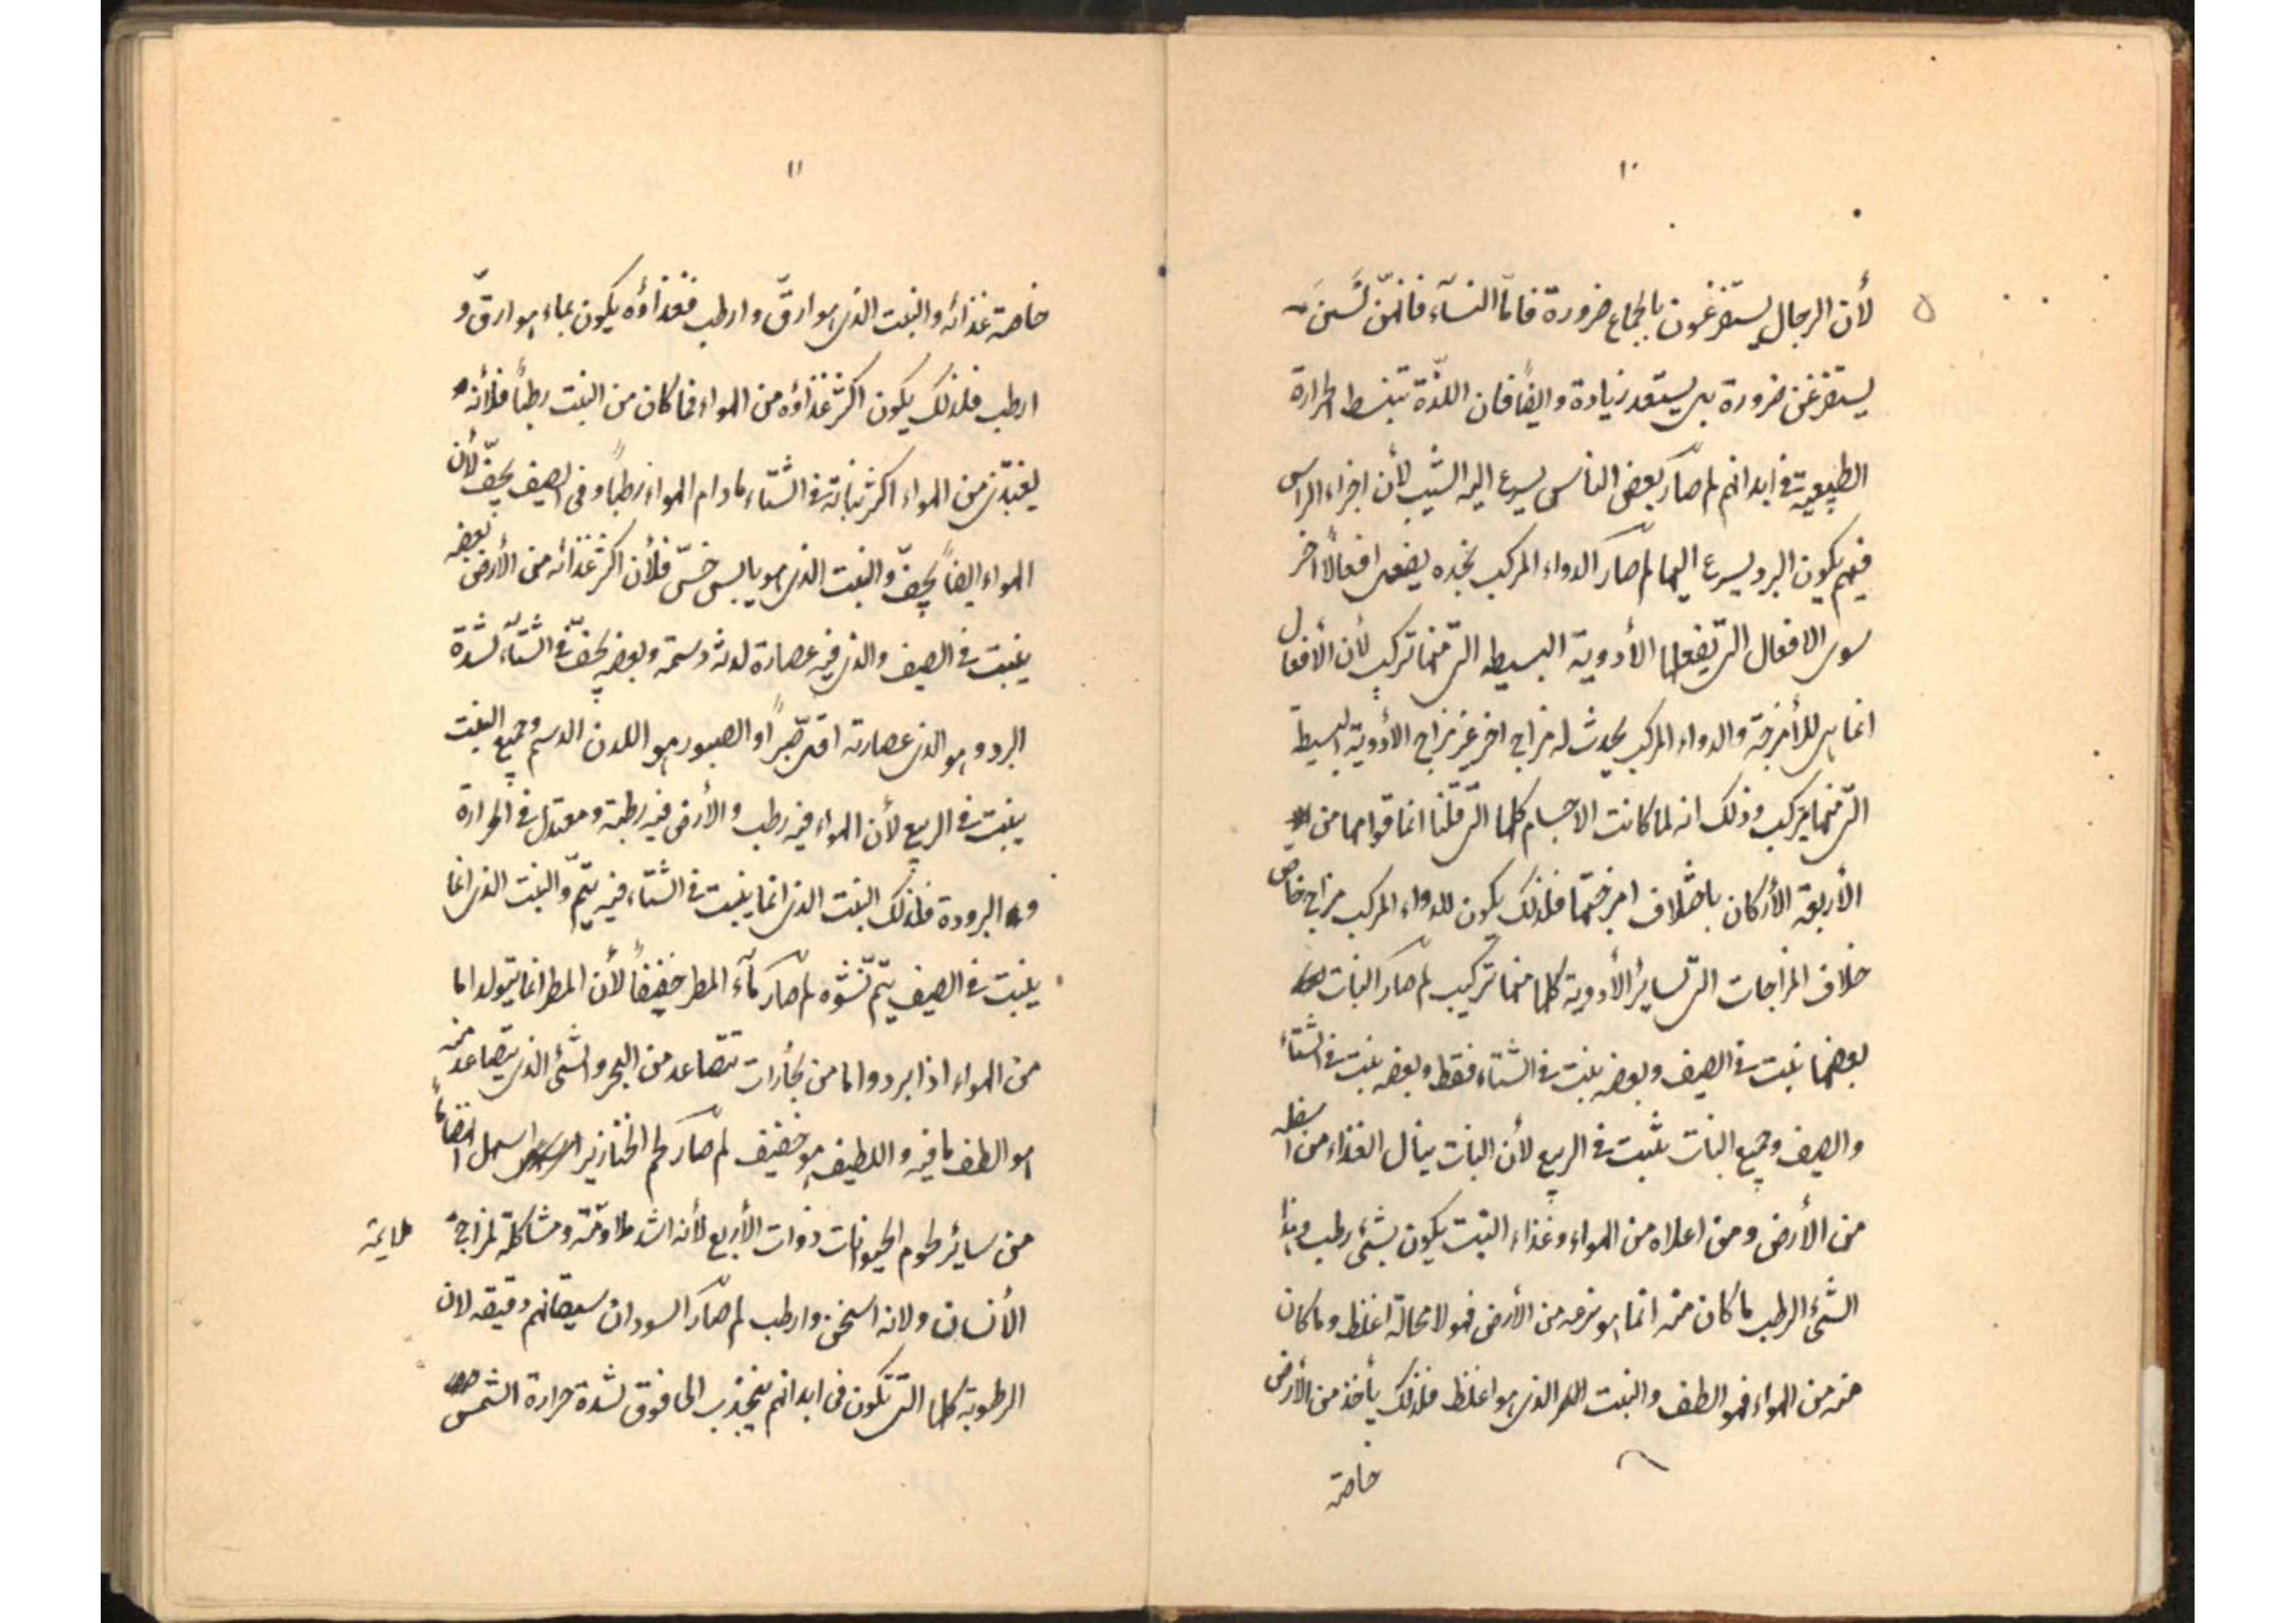 ١٠
لأن الرجال يستفرغون بالجماع ضرورة فامّا النسآء فانهنّ لَسْنَ
يستفرغن ضرورة بل يستعد زيادة وايضًا فان اللذّة تبسط الحرارة
الطبيعية في ابدانهم لم صار بعض الناس يسرع اليه الشيب لأن اجزاء الراس
فيهم يكون البرد يسرع اليها لم صار الدواء المركب نجده يفعل افعالًا اخر
سوى الافعال التي تفعلها الأدوية البسيطه التي منها تركب لأن الأفعال
انما هي للأمزجة والدواء المركب يحدث له مزاج اخر غير مزاج الأدوية البسيطة
التي منها يتركب وذلك انه لما كانت الاجسام كلها التي قلنا انما قوامها من
الأربعة الأركان باختلاف امزجتها فلذلك يكون للدواء المركب مزاج خاص
خلاف المزاجات التي لسائر الأدوية كلها منها تركيب لم صار النبات
بعضها نبت في الصيف وبعضه نبت في الشتاء فقط وبعضه نبت في الشتاء
والصيف وجميع النبات نبت في الربيع لأن النبات ينال الغذاء من اسفله
من الأرض ومن اعلاه من الهواء وغذاء النبت يكون بشئ رطب وهذا
الشئ الرطب ما كان منه انما هو نزعه من الأرض فهو لا محالة اغلظ وما كان
منه من الهواء فهو الطف والنبت الذي هو اغلظ فلذلك يأخذ من الأرض
خاصة
١١
خاصة غذائه والنبت الذي هو ارقّ وارطب فغذاؤه يكون بماء هو ارقّ و
ارطب فلذلك يكون اكثر غذاؤه من الهواء فما كان من النبت رطبًا فلأنه
يغتذي من الهواء اكثر نباته في الشتاء ما دام الهواء رطبًا وفى الصيف يجفّ لأن
الهواء ايضًا يجفّ والنبت الذي هو يابس خسّ فلأن اكثر غذائه من الأرض بعضه
ينبت في الصيف والذي فيه عصارة لدنه دسمة وبعضه يجفّ في الشتآء لشدة
البرد وهو الذي عصارته اقل صبرًا والصبور هو اللدن الدسم وجميع النبت
ينبت في الربيع لأن الهواء فيه رطب والأرض فيه رطبة ومعتدل في الحرارة
و البرودة فلذلك النبت الذي انما ينبت في الشتاء فيه يتمّ والنبت الذي انما
ينبت في الصيف يتم نشوه لم صار مآء المطر خفيفًا لأن المطر انما يتولد اما
من الهواء اذا برد واما من بخارات تتصاعد من البحر والشئ الذي يتصاعد منه
هو الطف ما فيه واللطيف هو خفيف لم صار لحم الخنازير اسهل انهضامًا
من سائر لحوم الحيوانات ذوات الأربع لأنه اشد ملاومة ومشاكلة لمزاج
ملايمة
الأنسان ولانه اسخن وارطب لم صار السودان سيقانهم دقيقه لان
الرطوبة كلها التي تكون في ابدانهم ينجذب الى فوق لشدة حرارة الشمس